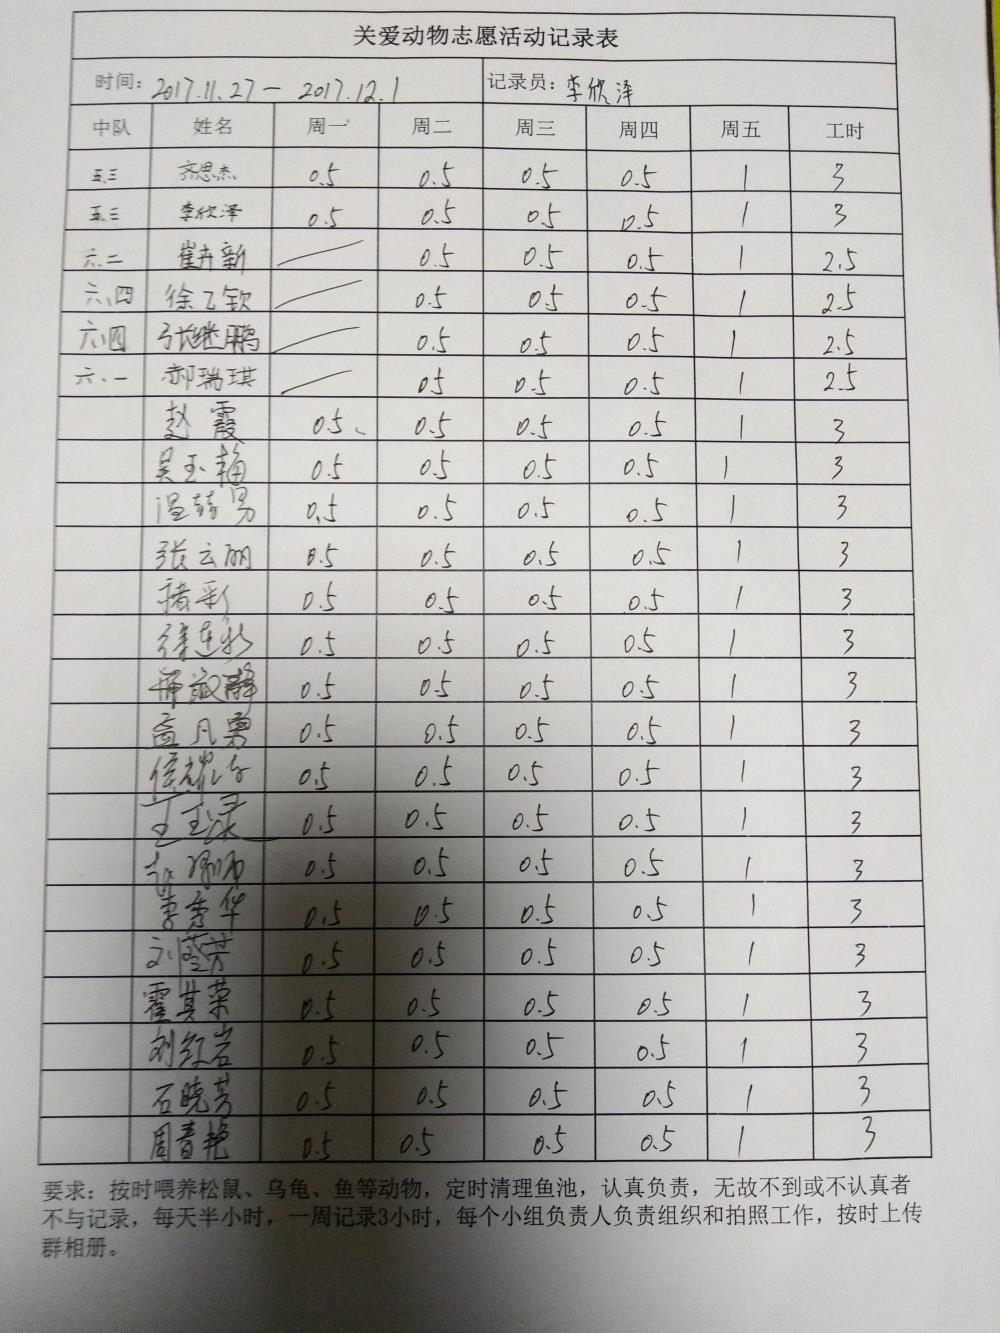 关爱动物志愿活动记录表
时间：2017.11.27— 2017.12.1 记录员：李欣泽
中队 姓名 周一 周二 周三 周四 周五 工时
五.三 齐思杰 0.5 0.5 0.5 0.5 1 3
五.三 李欣泽 0.5 0.5 0.5 0.5 1 3
六.二 崔卉新 0.5 0.5 0.5 1 2.5
六.四 徐乙钦 0.5 0.5 0.5 1 2.5
六.四 张继鹏 0.5 0.5 0.5 1 2.5
六.一 郝瑞琪 0.5 0.5 0.5 1 2.5
赵霞 0.5 0.5 0.5 0.5 1 3
吴玉梅 0.5 0.5 0.5 0.5 1 3
0.5 0.5 0.5 0.5 1 3
张云丽 0.5 0.5 0.5 0.5 1 3
褚彩 0.5 0.5 0.5 0.5 1 3
0.5 0.5 0.5 0.5 1 3
0.5 0.5 0.5 0.5 1 3
孟凡勇 0.5 0.5 0.5 0.5 1 3
0.5 0.5 0.5 0.5 1 3
0.5 0.5 0.5 0.5 1 3
0.5 0.5 0.5 0.5 1 3
李秀华 0.5 0.5 0.5 0.5 1 3
0.5 0.5 0.5 0.5 1 3
霍其荣 0.5 0.5 0.5 0.5 1 3
刘红岩 0.5 0.5 0.5 0.5 1 3
石晓芳 0.5 0.5 0.5 0.5 1 3
周春艳 0.5 0.5 0.5 0.5 1 3
要求：按时喂养松鼠、乌龟、鱼等动物，定时清理鱼池，认真负责，无故不到或不认真者
不与记录，每天半小时，一周记录3小时，每个小组负责人负责组织和拍照工作，按时上传
群相册。